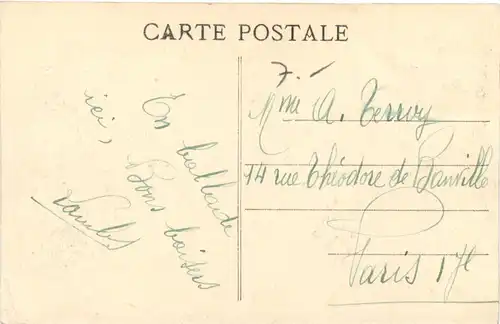 CARTE POSTALE
7.-
En ballade
ici,
Bons baisers
Mme A. Terroy
14 rue Théodore de Banville
Paris 17e